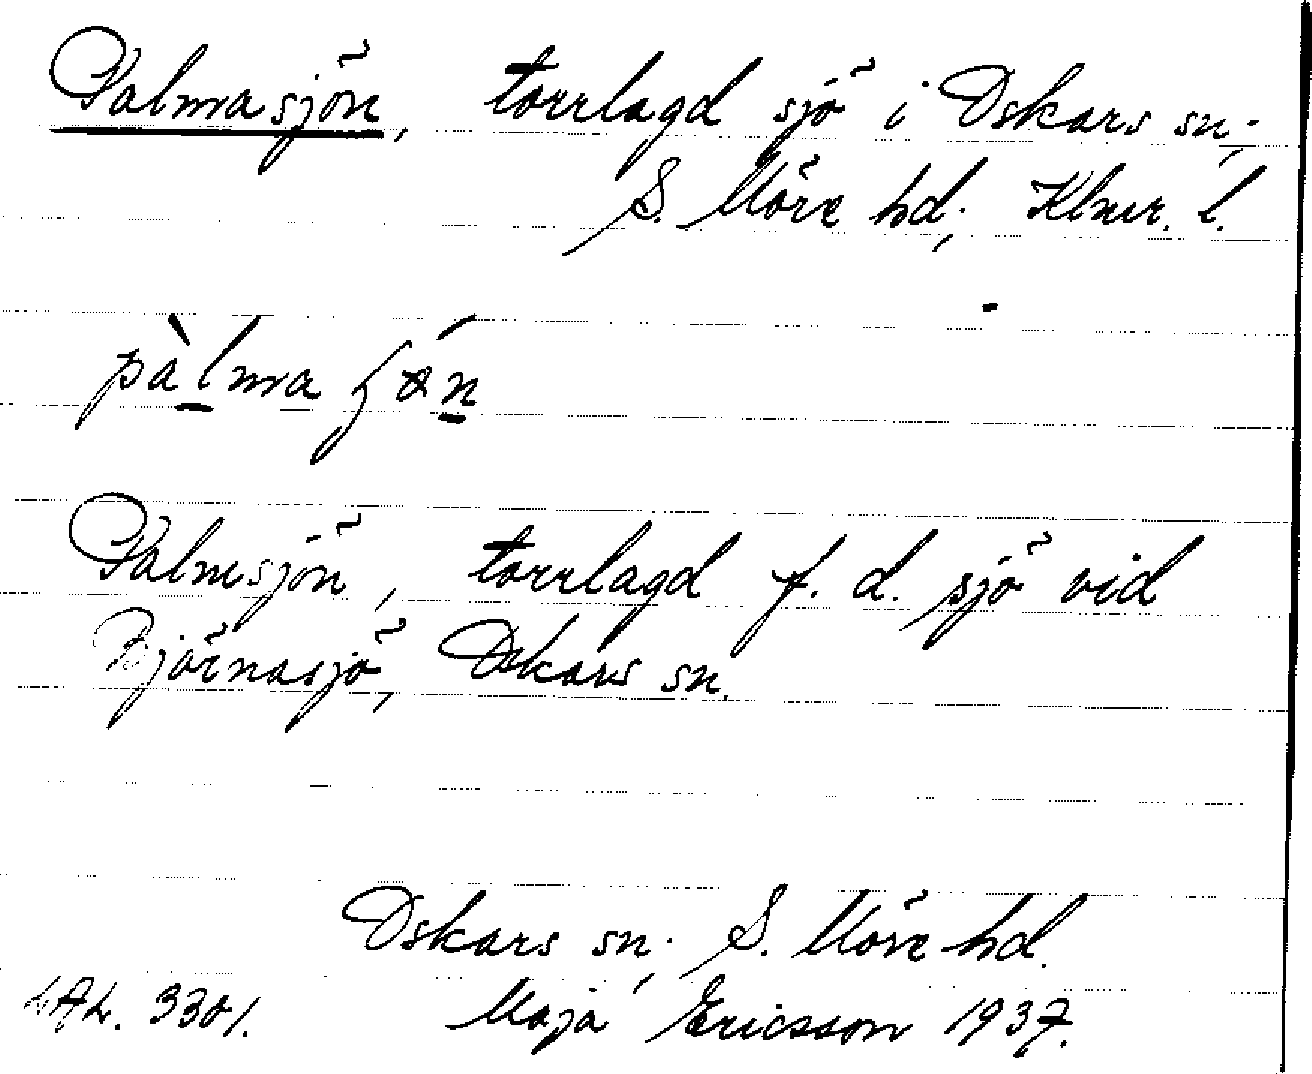 Palmasjön, torrlagd sjö i Oskars sn.,
S. Möre hd., Klmr. l.
pàlma ʃǿn
Palmsjön, torrlagd f. d. sjö vid
Björnasjö, Oskars sn.
Oskars sn., S. Möre hd.
LAL. 3301. Maja Ericsson 1937.